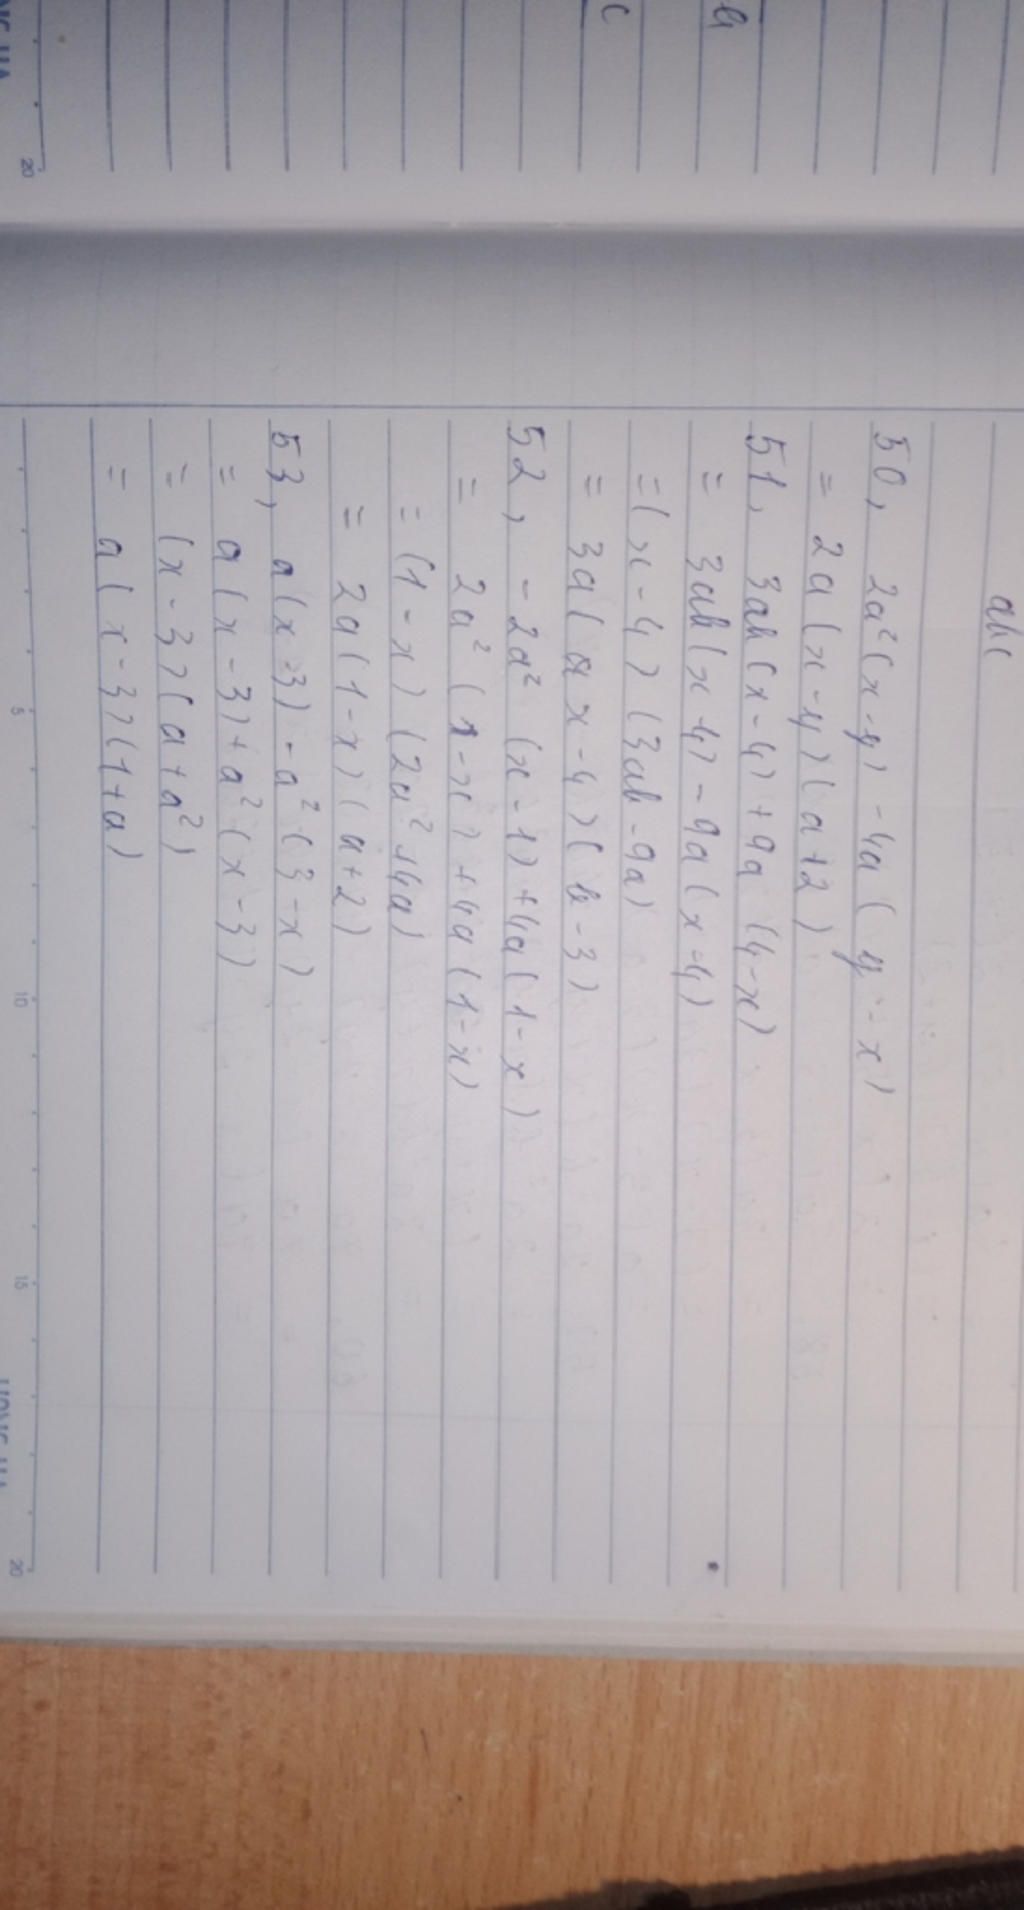 abc
50, 2a²(x-y) - 4a(y-x)
= 2a(x-y)(a+2)
51, 3ab(x-4)+9a(4-x)
= 3ab(x-4)-9a(x-4)
=(x-4)(3ab-9a)
= 3a(x-4)(b-3)
52, -2a² (x-1)+4a(1-x)
= 2a² (1-x)+4a(1-x)
= (1-x)(2a²+4a)
= 2a(1-x)(a+2)
53, a(x-3)-a²(3-x)
= a(x-3)+a²(x-3)
= (x-3)(a+a²)
= a(x-3)(1+a)
5 10 15 20
20